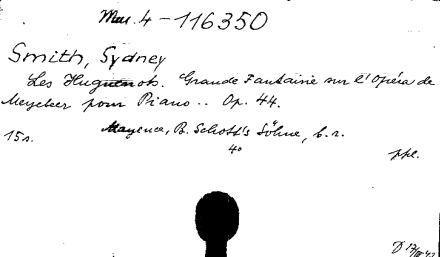 Mus. 4-116350
Smith, Sydney
Les Huguenots. Grande Fantaisie sur l'Opéra de
Meyerbeer pour Piano .. Op. 44.
15 s. Mayence, B. Schott's Söhne, s. a.
4°
ppl.